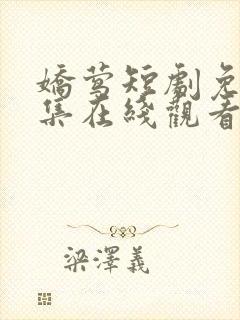 嬌莺短劇免
集在綫觀看
梁澤義